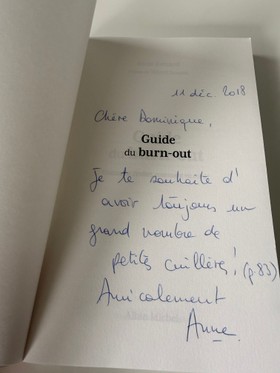 11 déc. 2018
Chère Dominique,
Guide
du burn-out
Je te souhaite d'
avoir toujours un
grand nombre de
petites cuillères! (p.83)
Amicalement
Anne